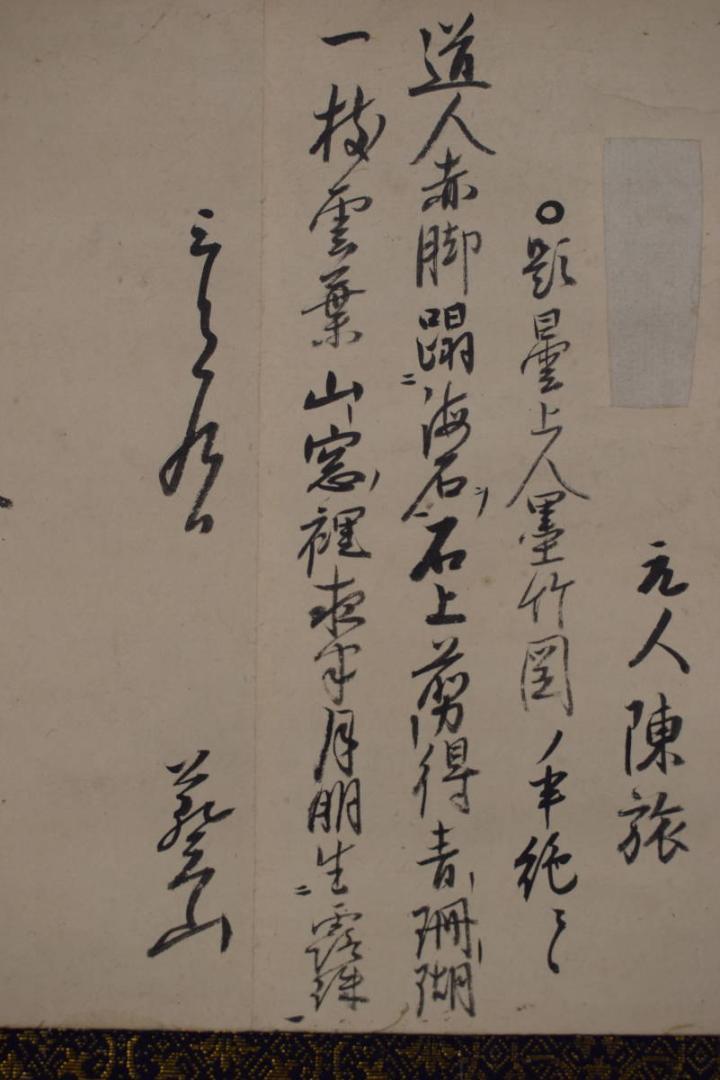 元人陳旅
○題曇上人墨竹図ノ半絶
道人赤脚蹋海石石上剪得青珊瑚
一枝雲葉山窓裡夜半月明生露珠
三月九日
山